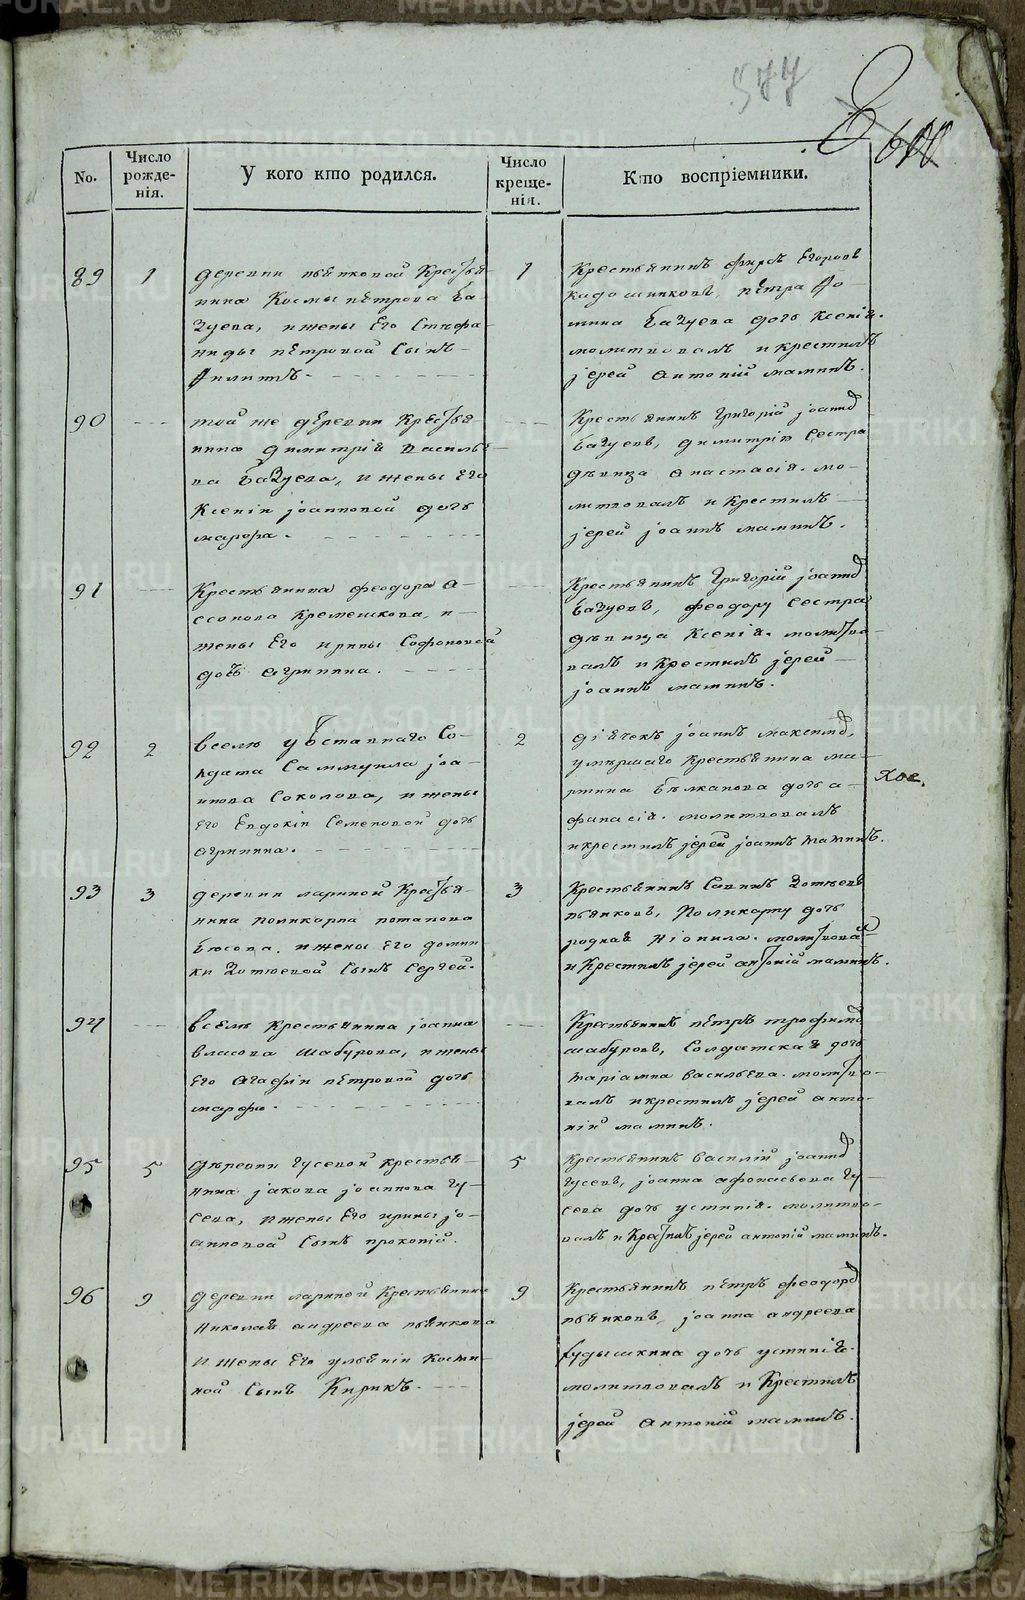 577
600
No.
Число рожде-нія.
У кого кто родился.
Число креще-нія.
Кто воспріемники.
89 1 деревни пьянковой Кресть-я- 1
нина Космы петрова Ба-
зуева, и жены Его Стефа-
ниды петровой Сынъ
Филиппъ.
Крестьянинъ Егоровъ
петра Фо-
мина Базуева дочь Ксенія.
молитвовалъ и крестилъ
іерей Антоній маминъ.
90 той же деревни Крестья-
нина димитрія василье-
ва Базуева, и жены Его
Ксеніи іоанновой дочь
марфа.
Крестьянинъ Григорій іоаннов
Базуевъ, димитрія Сестра
дѣвица анастасія. мо-
литвовалъ и крестилъ
іерей іоаннъ маминъ.
91 Крестьянина феодора а-
Кремешкова, и
жены Его ирины Софоновой
дочь агрипина.
Крестьянинъ Григорій іоаннов
Базуевъ, феодору Сестра
дѣвица Ксенія. молитво-
валъ и крестилъ іерей
іоаннъ маминъ.
92 2 вселѣ у отставнаго Со-
лдата Саммуила іоа-
ннова Соколова, и жены
Его Евдокіи Семеновой дочь
агрипина.
2
дьячекъ іоаннъ максимов,
умершаго крестьянина ма-
ртина дочь а-
фанасія. молитвовалъ
и крестилъ іерей іоаннъ маминъ.
93 3 деревни лариной Крестья-
нина поликарпа потапова
Бѣсова, и жены Его домни-
ки Зотѣевой Сынъ Сергей.
3
Крестьянинъ Саввинъ Зотѣевъ
пьянковъ, Поликарпу дочь
родная Ніонила. молитвовал
и Крестилъ іерей антоній маминъ.
94 всѣлѣ Крестьянина іоанна
власова шабурова, и жены
Его Агафіи петровой дочь
марфа.
Крестьянинъ петръ трофимов
шабуровъ, Солдатская дочь
маріамна васильева. молитво-
валъ и крестилъ іерей анто-
ній маминъ.
95 5 дѣревни гусевой крестья-
нина іакова іоаннова гу-
сева, и жены Его ирины іо-
анновой Сынъ прокопій.
5
Крестьянинъ василій іоаннов
гусевъ, іоанна афонасьева гу-
сева дочь устинія. молитво-
валъ и Крестилъ іерей антоній маминъ.
96 9 деревни лариной Крестьянина
Николая андреева пьянкова
и жены Его ульяніи Кости-
ной Сынъ Кирикъ.
9
Крестьянинъ петръ феодоров
пьянковъ, іоанна андреева
дочь устинія.
молитвовалъ и Крестилъ
іерей Антоній маминъ.
METRIKI.GASO-URAL.RU